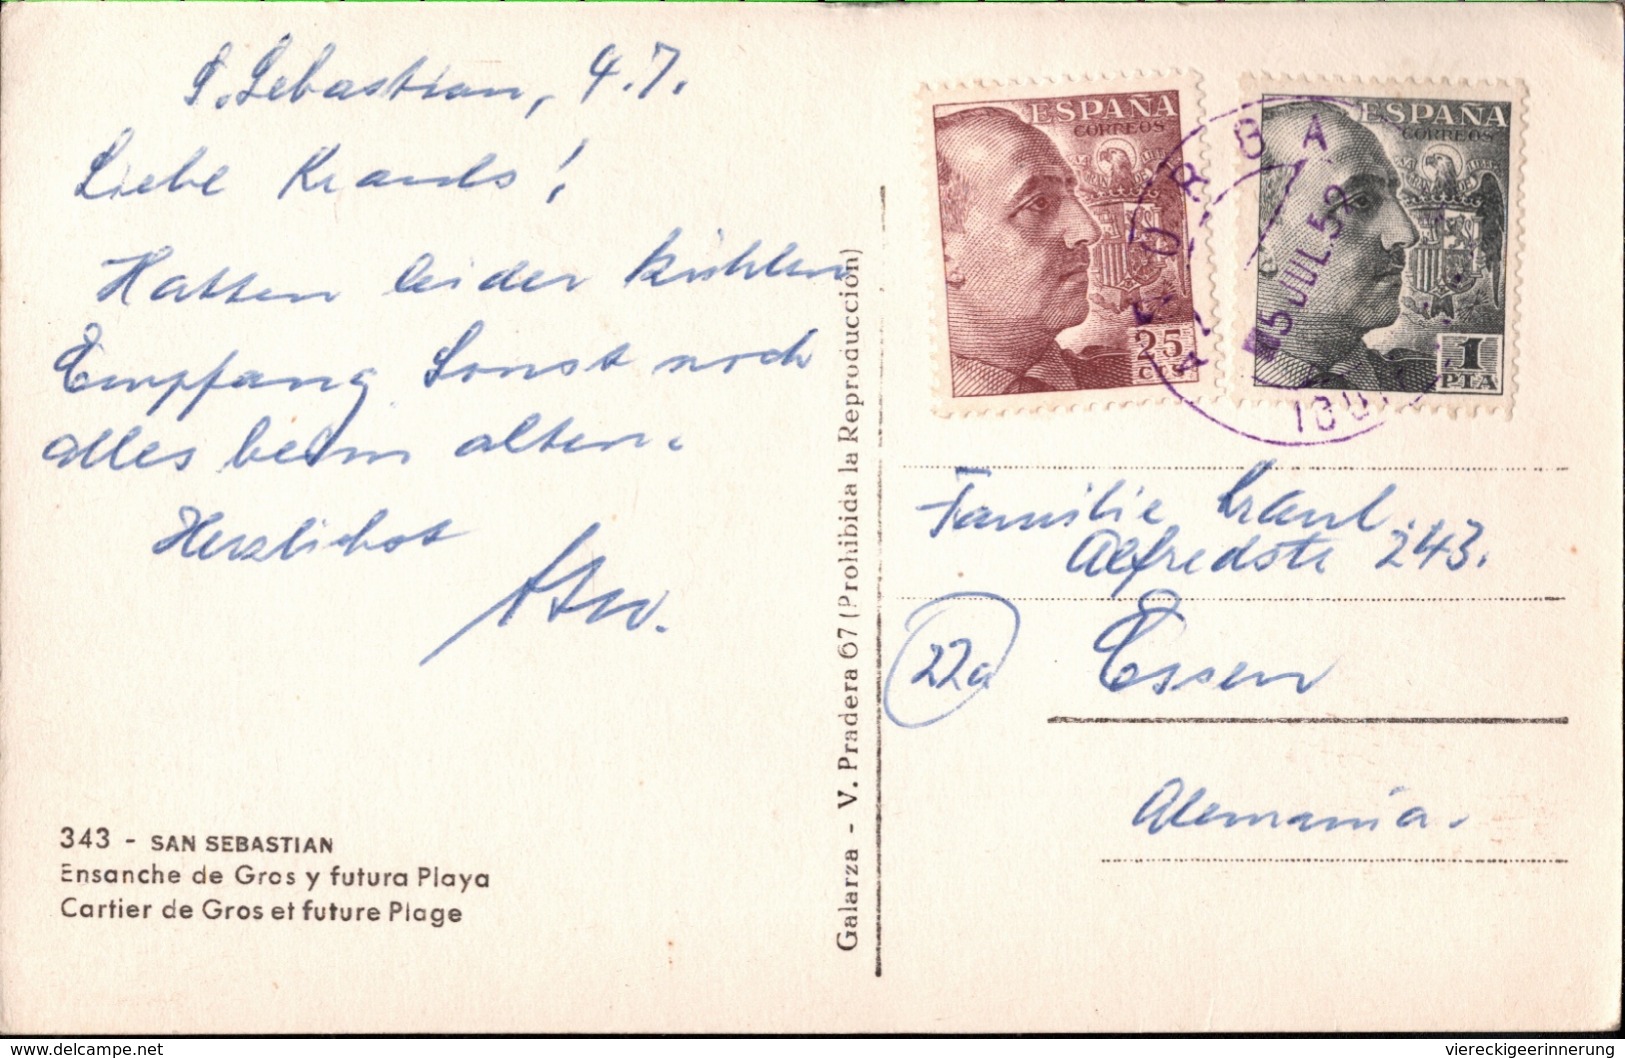 S. Sebastian, 4.7.
Liebe Krauls!
Hatten leider kühlen
Empfang. Sonst noch
alles beim alten.
Herzlichst
343 - SAN SEBASTIAN
Ensanche de Gros y futura Playa
Cartier de Gros et future Plage
Galarza - V. Pradera 67 (Prohibida la Reproducción)
ESPAÑA
CORREOS
25
CTS
ESPAÑA
CORREOS
1
PTA
5 JUL.52
Familie Kraul.
Alfredstr 243.
22a
Essen
Alemania.
delcampe.net
viereckigeerinnerung